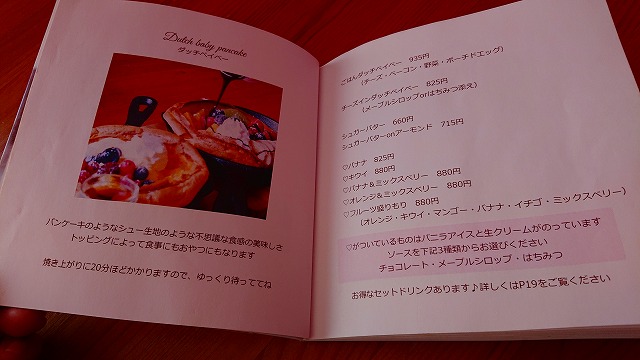 Dutch baby pancake
ダッチベイベー
パンケーキのようなシュー生地のような不思議な食感の美味しさ
トッピングによって食事にもおやつにもなります
焼き上がりに20分ほどかかりますので、ゆっくり待っててね
ごはんダッチベイベー 935円
(チーズ・ベーコン・野菜・ポーチドエッグ)
チーズインダッチベイベー 825円
(メープルシロップorはちみつ添え)
シュガーバター 660円
シュガーバターonアーモンド 715円
♡バナナ 825円
♡キウイ 880円
♡バナナ&ミックスベリー 880円
♡オレンジ&ミックスベリー 880円
♡フルーツ盛りもり 880円
(オレンジ・キウイ・マンゴー・バナナ・イチゴ・ミックスベリー)
♡がついているものはバニラアイスと生クリームがのっています
ソースを下記3種類からお選びください
チョコレート・メープルシロップ・はちみつ
お得なセットドリンクあります♪詳しくはP19をご覧ください